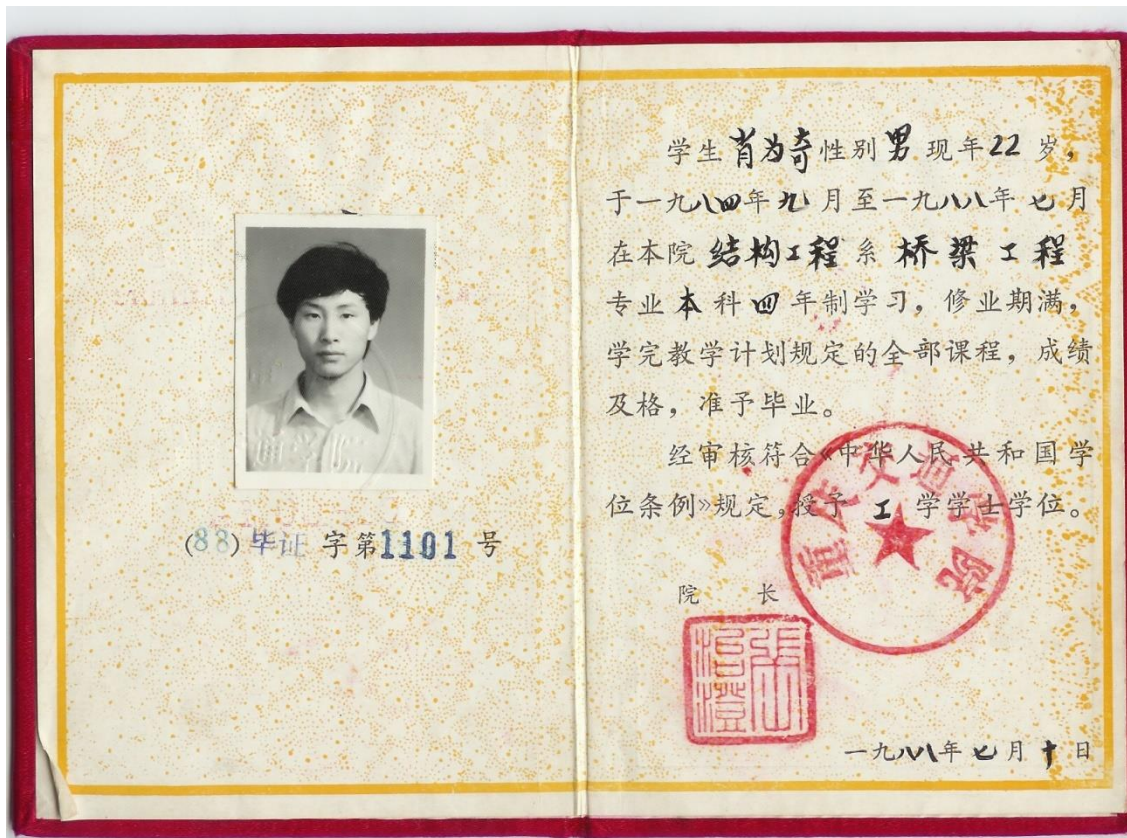 (88)毕证字第1101号
学生肖为奇性别男现年22岁，
于一九八四年九月至一九八八年七月
在本院结构工程系桥梁工程
专业本科四年制学习，修业期满，
学完教学计划规定的全部课程，成绩
及格，准予毕业。
经审核符合《中华人民共和国学
位条例》规定，授予工学学士学位。
重庆交通学院
院长
一九八八年七月十日